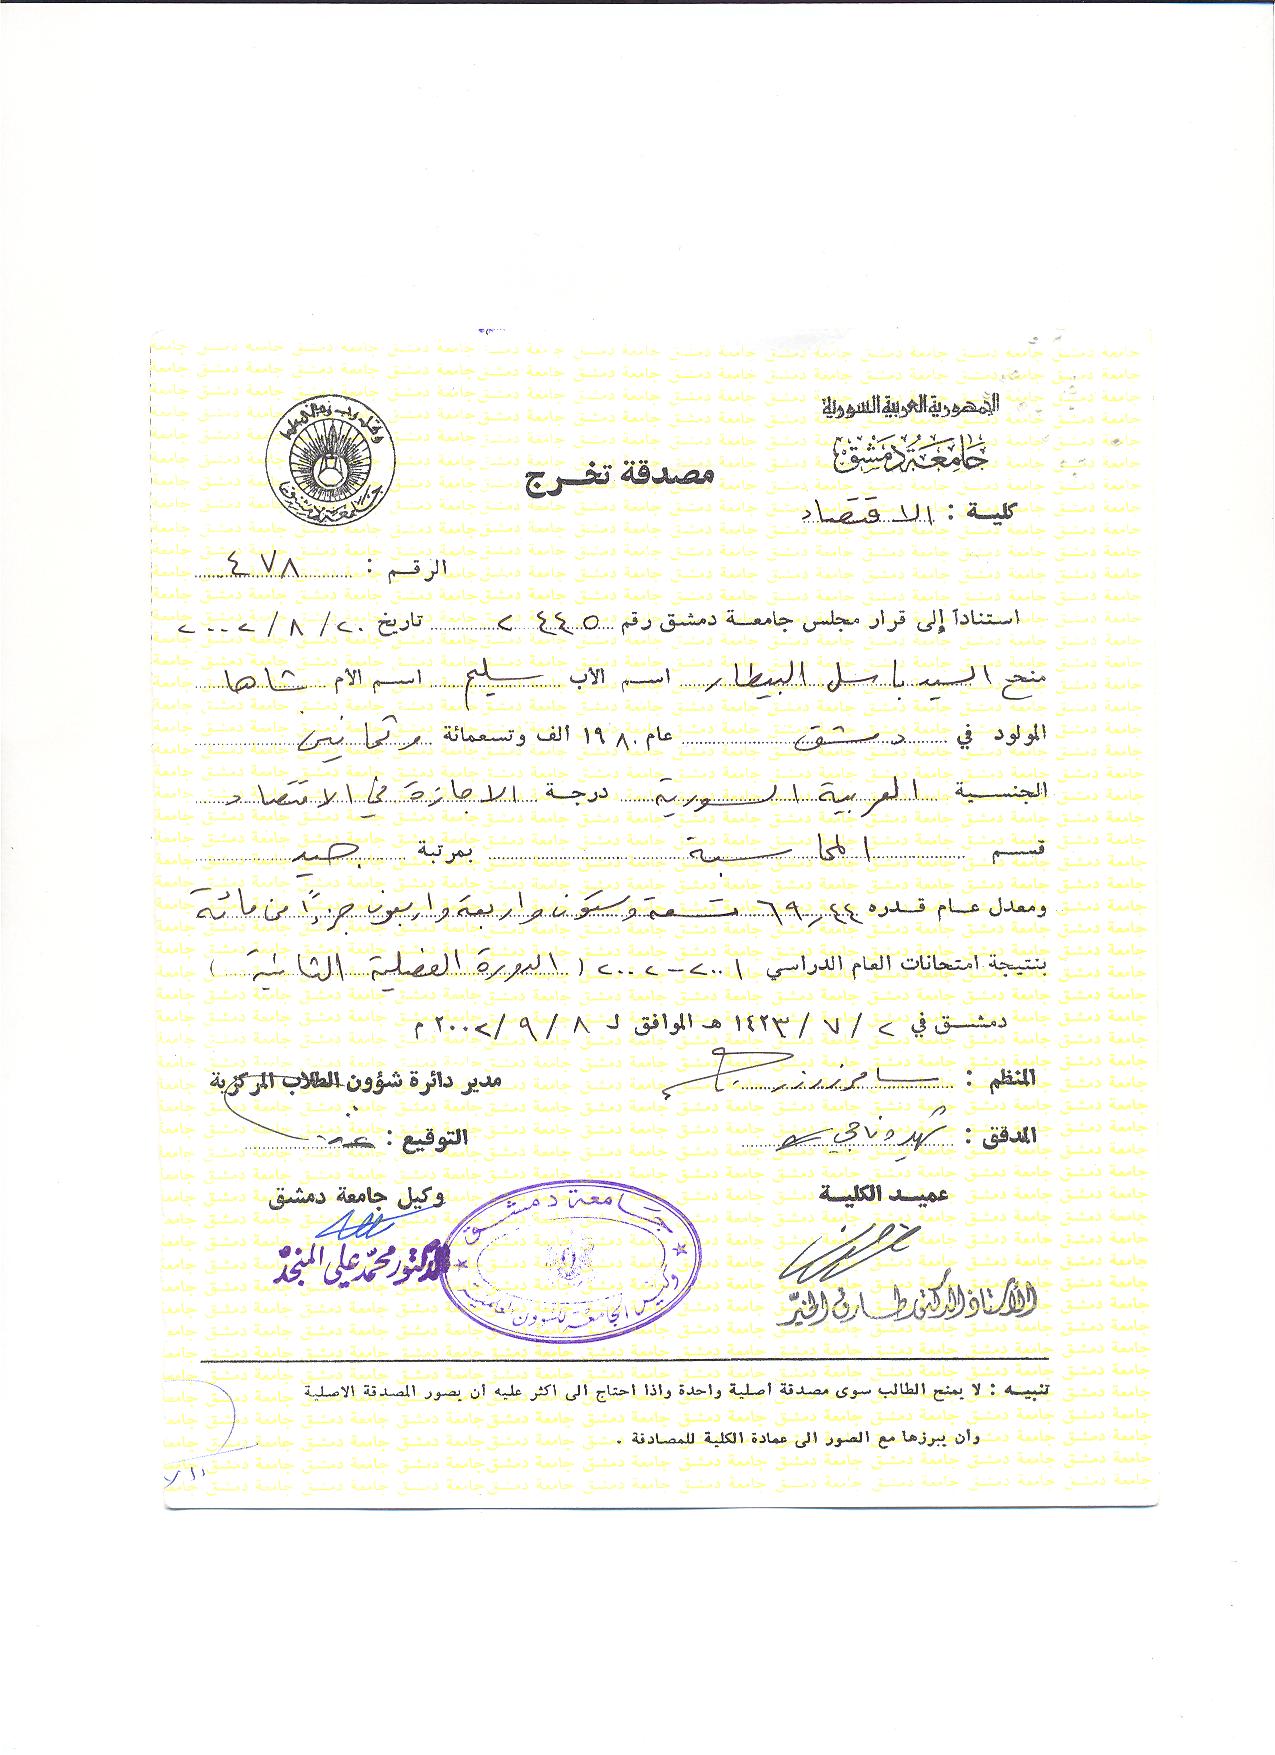 الجمهورية العربية السورية
جامعة دمشق
مصدقة تخرج
كلية : الاقتصاد
الرقم : ٤٧٨
استناداً إلى قرار مجلس جامعة دمشق رقم ٢٤٤٥ تاريخ ٢٠/٨/٢٠٠٢
منح السيد باسل البيطار اسم الأب سليم اسم الأم شاها
المولود في دمشق عام ١٩٨٠ ألف وتسعمائة وثمانين
الجنسية العربية السورية درجة الاجازة في الاقتصاد
قسم المحاسبة بمرتبة جيد
ومعدل عام قدره ٦٩,٤٤ تسعة وستون واربعة واربعون جزءًا من مائة
بنتيجة امتحانات العام الدراسي ٢٠٠١-٢٠٠٢ ( الدورة الفصلية الثانية )
دمشق في ٢/٧/١٤٢٣ هـ الموافق لـ ٨/٩/٢٠٠٢ م
المنظم : سامر
مدير دائرة شؤون الطلاب المركزية
المدقق : ناجي
التوقيع :
عميد الكلية
وكيل جامعة دمشق
الأستاذ الدكتور طارق الخيّر
الدكتور محمّد علي المنجّد
جامعة دمشق
وكيل الجامعة للشؤون العلمية
تنبيه : لا يمنح الطالب سوى مصدقة أصلية واحدة واذا احتاج الى اكثر عليه ان يصور المصدقة الاصلية
وأن يبرزها مع الصور الى عمادة الكلية للمصادقة .